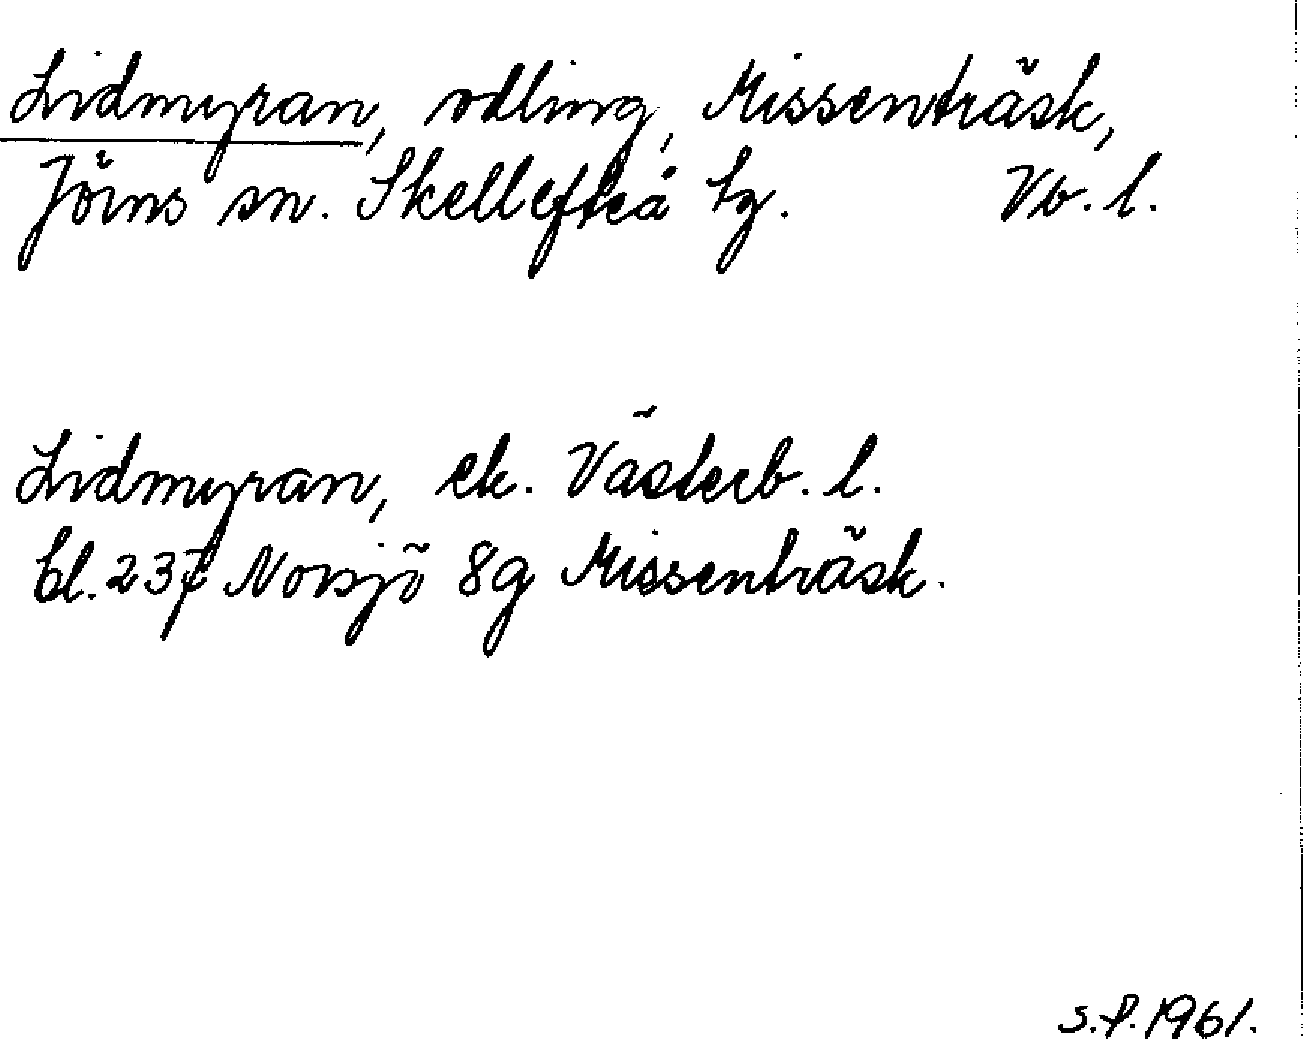 Lidmyran, odling, Missenträsk,
Jörns sn. Skellefteå tg. Vb. l.
Lidmyran, ek. Västerb. l.
bl. 237 Norsjö 8g Missenträsk.
S.f. 1961.